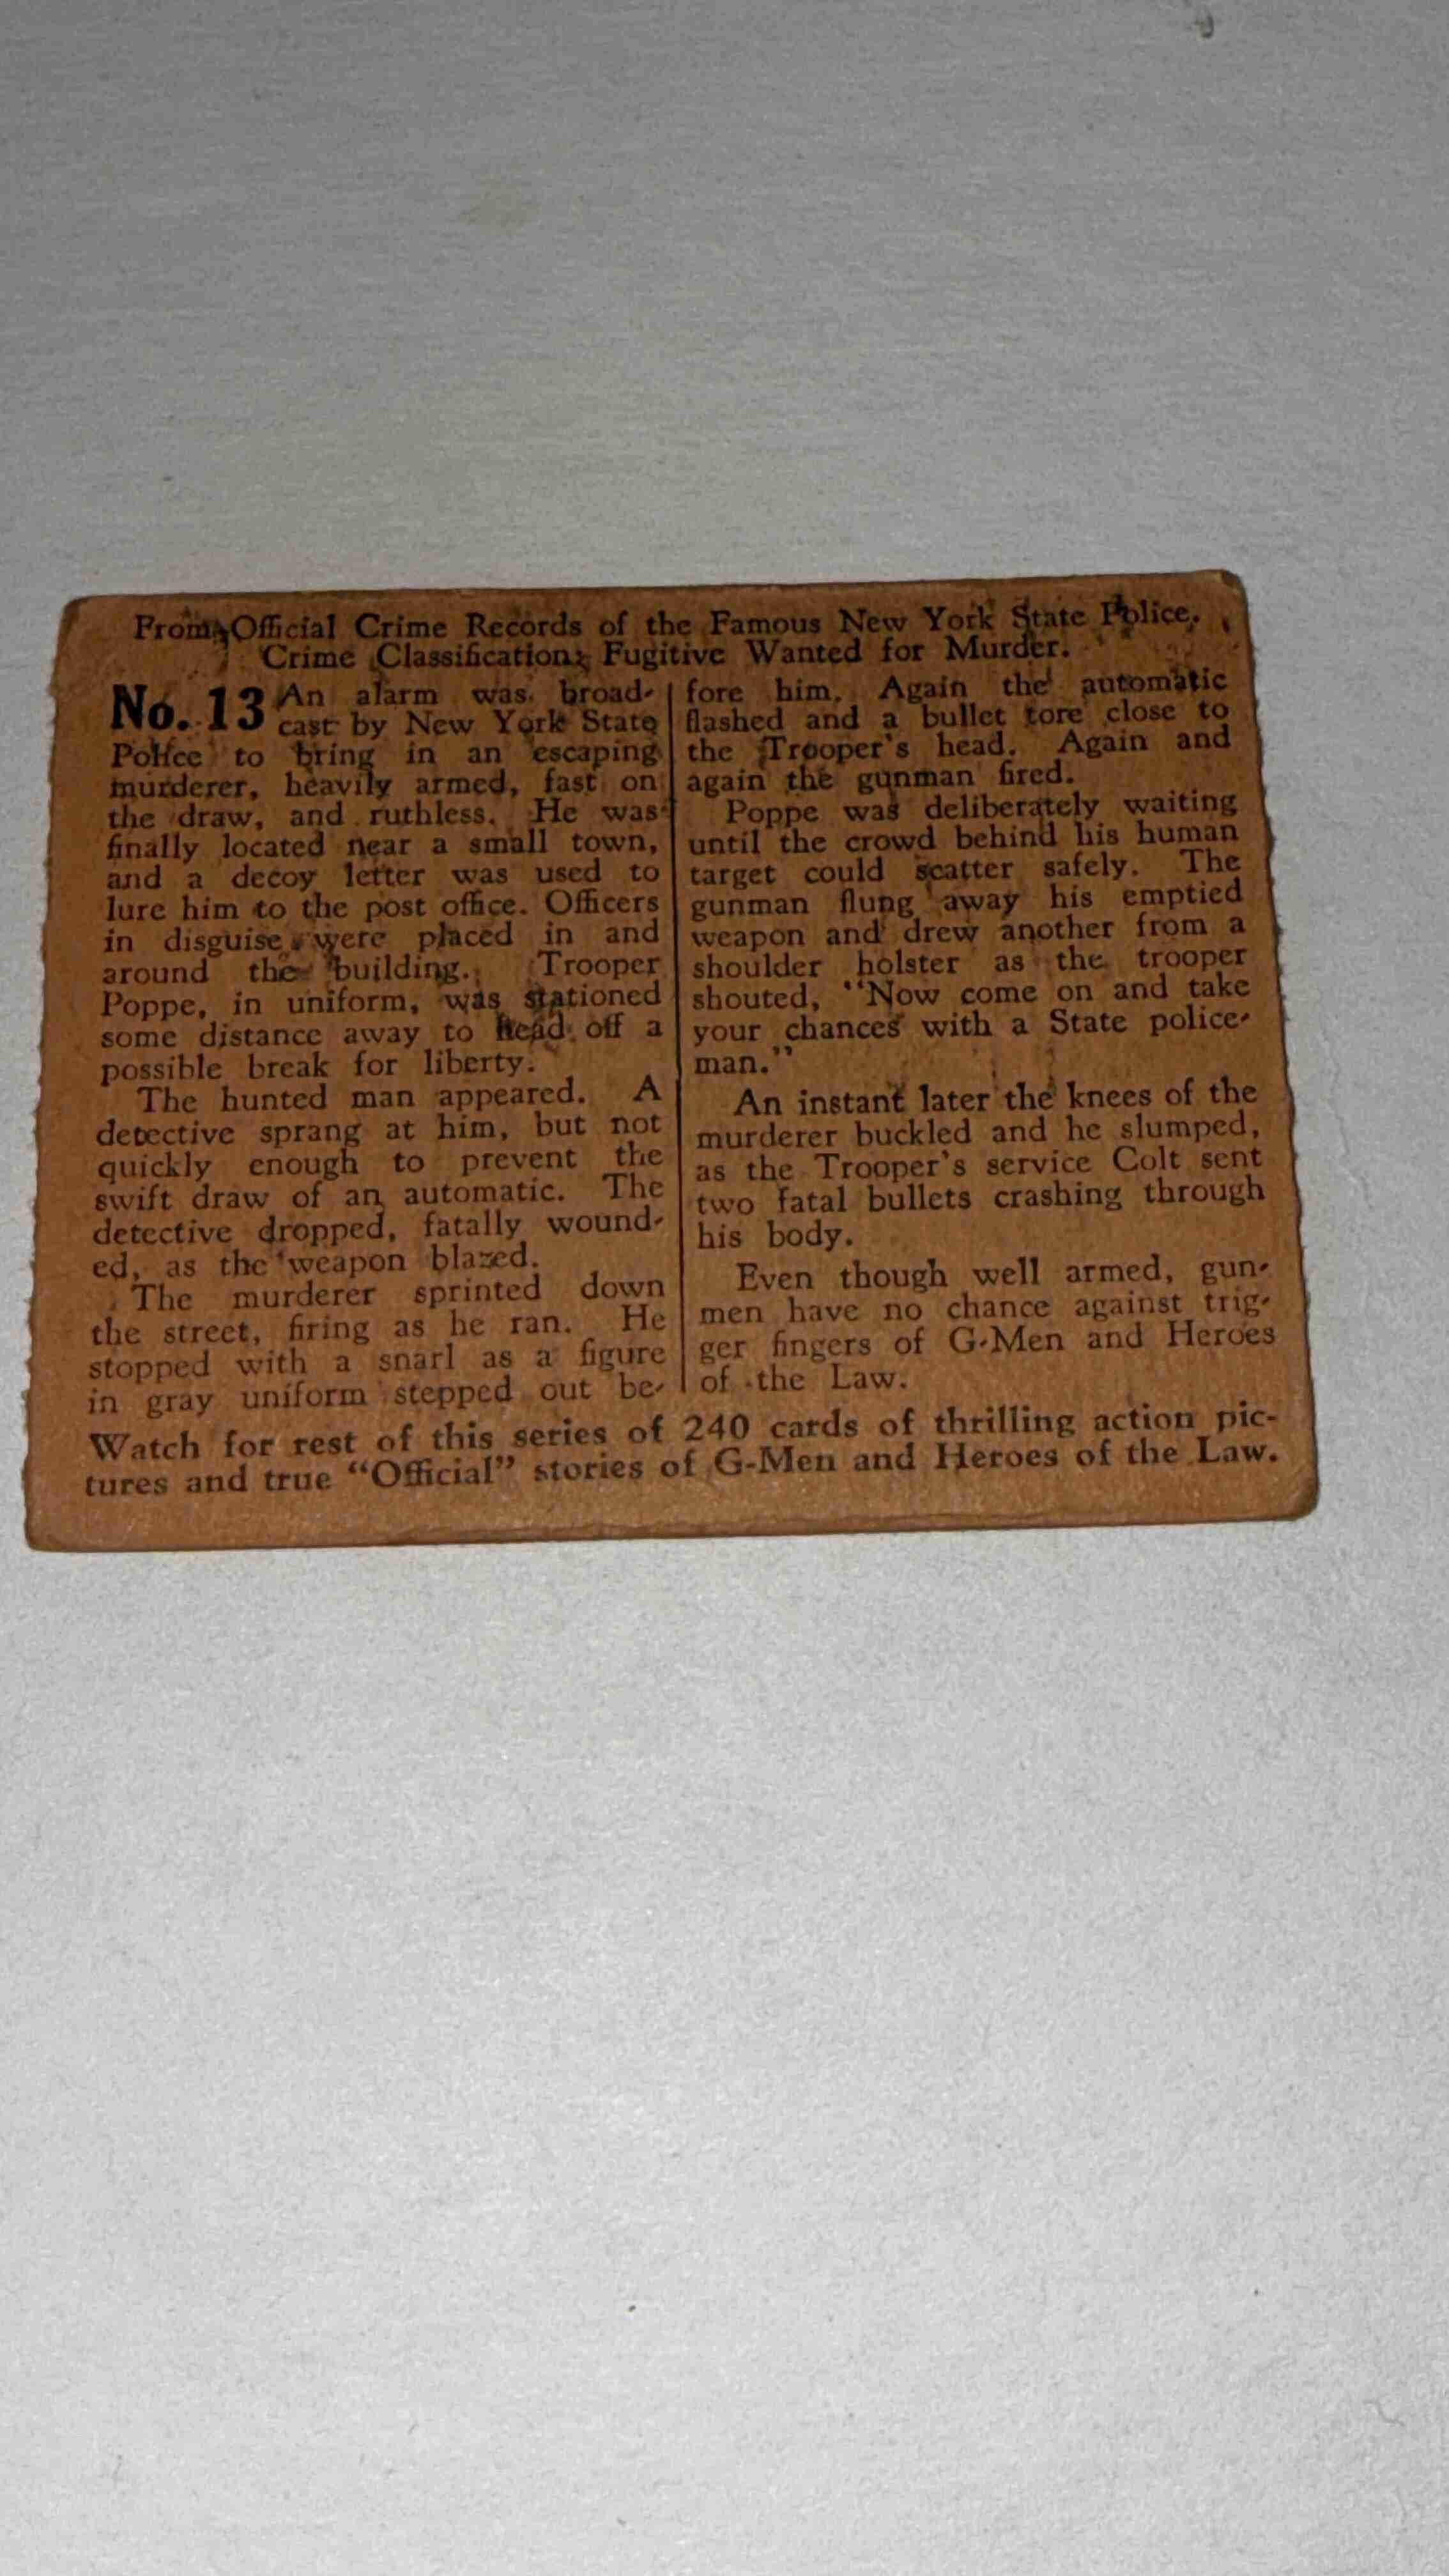 From Official Crime Records of the Famous New York State Police.
Crime Classification; Fugitive Wanted for Murder.
No. 13 An alarm was broad-
cast by New York State
Police to bring in an escaping
murderer, heavily armed, fast on
the draw, and ruthless. He was
finally located near a small town,
and a decoy letter was used to
lure him to the post office. Officers
in disguise were placed in and
around the building. Trooper
Poppe, in uniform, was stationed
some distance away to head off a
possible break for liberty.
The hunted man appeared. A
detective sprang at him, but not
quickly enough to prevent the
swift draw of an automatic. The
detective dropped, fatally wound-
ed, as the weapon blazed.
The murderer sprinted down
the street, firing as he ran. He
stopped with a snarl as a figure
in gray uniform stepped out be-
fore him. Again the automatic
flashed and a bullet tore close to
the Trooper's head. Again and
again the gunman fired.
Poppe was deliberately waiting
until the crowd behind his human
target could scatter safely. The
gunman flung away his emptied
weapon and drew another from a
shoulder holster as the trooper
shouted, "Now come on and take
your chances with a State police-
man."
An instant later the knees of the
murderer buckled and he slumped,
as the Trooper's service Colt sent
two fatal bullets crashing through
his body.
Even though well armed, gun-
men have no chance against trig-
ger fingers of G-Men and Heroes
of the Law.
Watch for rest of this series of 240 cards of thrilling action pic-
tures and true "Official" stories of G-Men and Heroes of the Law.